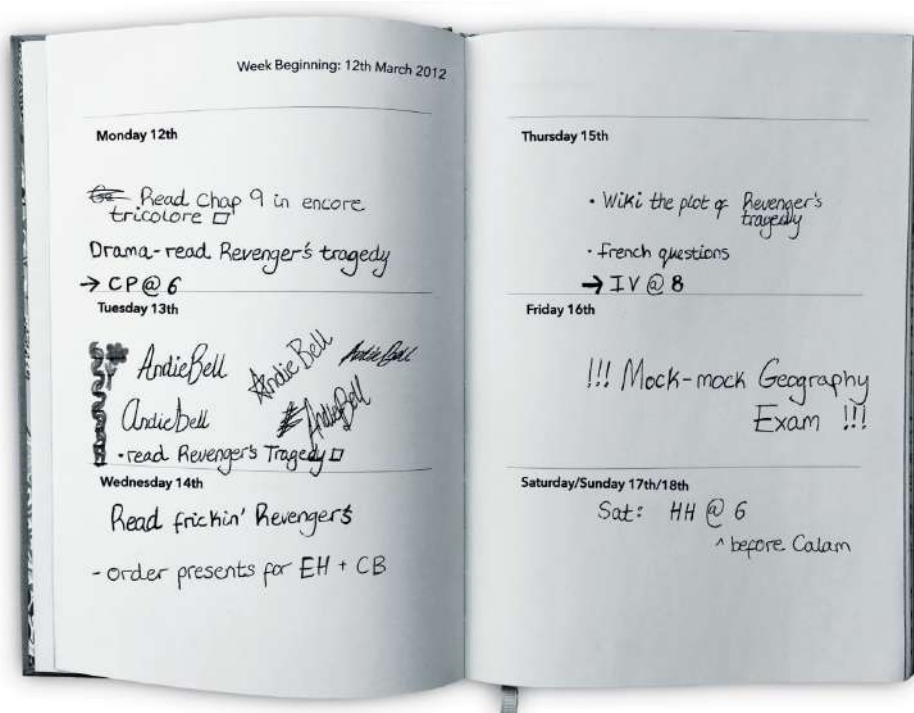 Week Beginning: 12th March 2012
Monday 12th
Read Chap 9 in encore
tricolore □
Drama-read Revenger's tragedy
→ CP@6
Tuesday 13th
AndieBell
Andie Bell
AndieBell
AndieBell
AndieBell
•read Revenger's Tragedy □
Wednesday 14th
Read frickin' Revengers
- order presents for EH + CB
Thursday 15th
• Wiki the plot of Revenger's
tragedy
• French questions
→ IV @ 8
Friday 16th
!!! Mock-mock Geography
Exam !!!
Saturday/Sunday 17th/18th
Sat: HH @ 6
^ before Calam